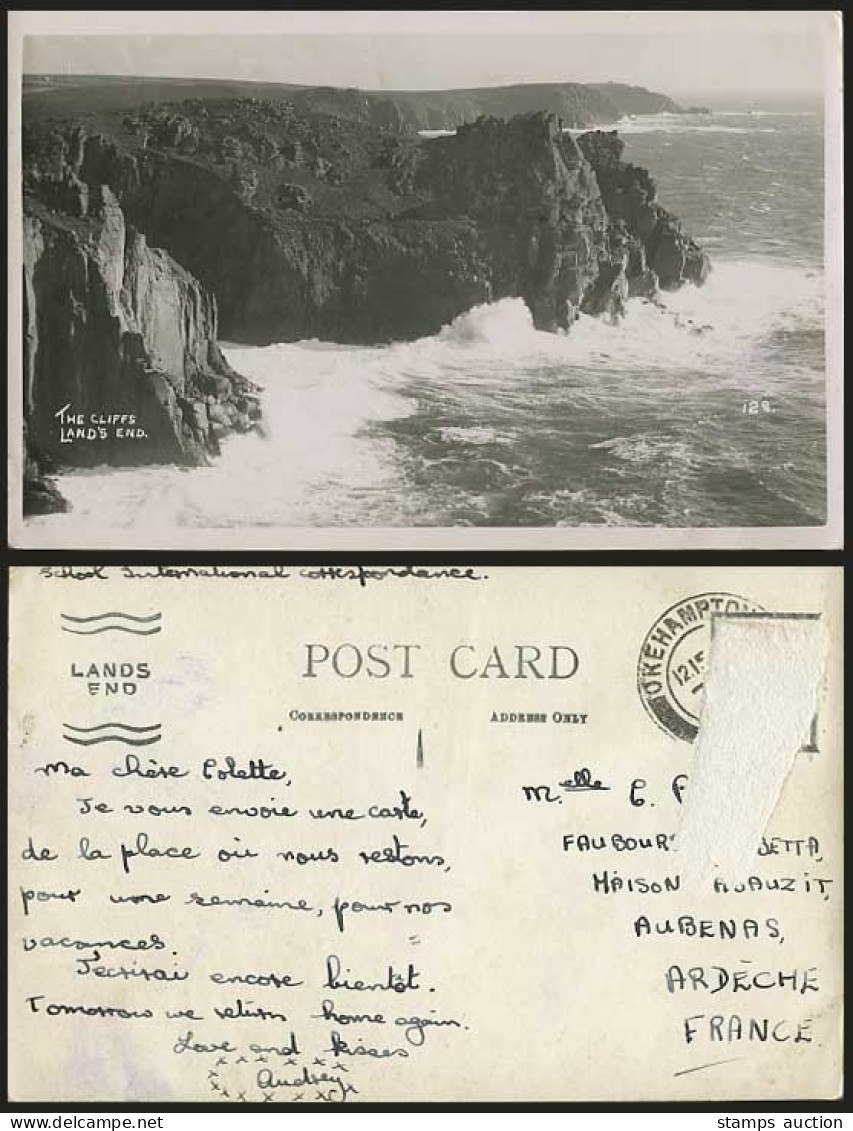 THE CLIFFS
LAND'S END.
128.
School International correspondance.
LANDS
END
POST CARD
CORRESPONDENCE
ADDRESS ONLY
OKEHAMPTON
12.15
Ma chère Colette,
Je vous envoie une carte,
de la place où nous restons,
pour une semaine, pour nos
vacances.
J'écrirai encore bientôt.
Tomorrow we return home again.
Love and kisses
x x x x x x x
Audrey
Melle C.
AUBENAS,
MAISON
ARDÈCHE
FRANCE
stamps auction